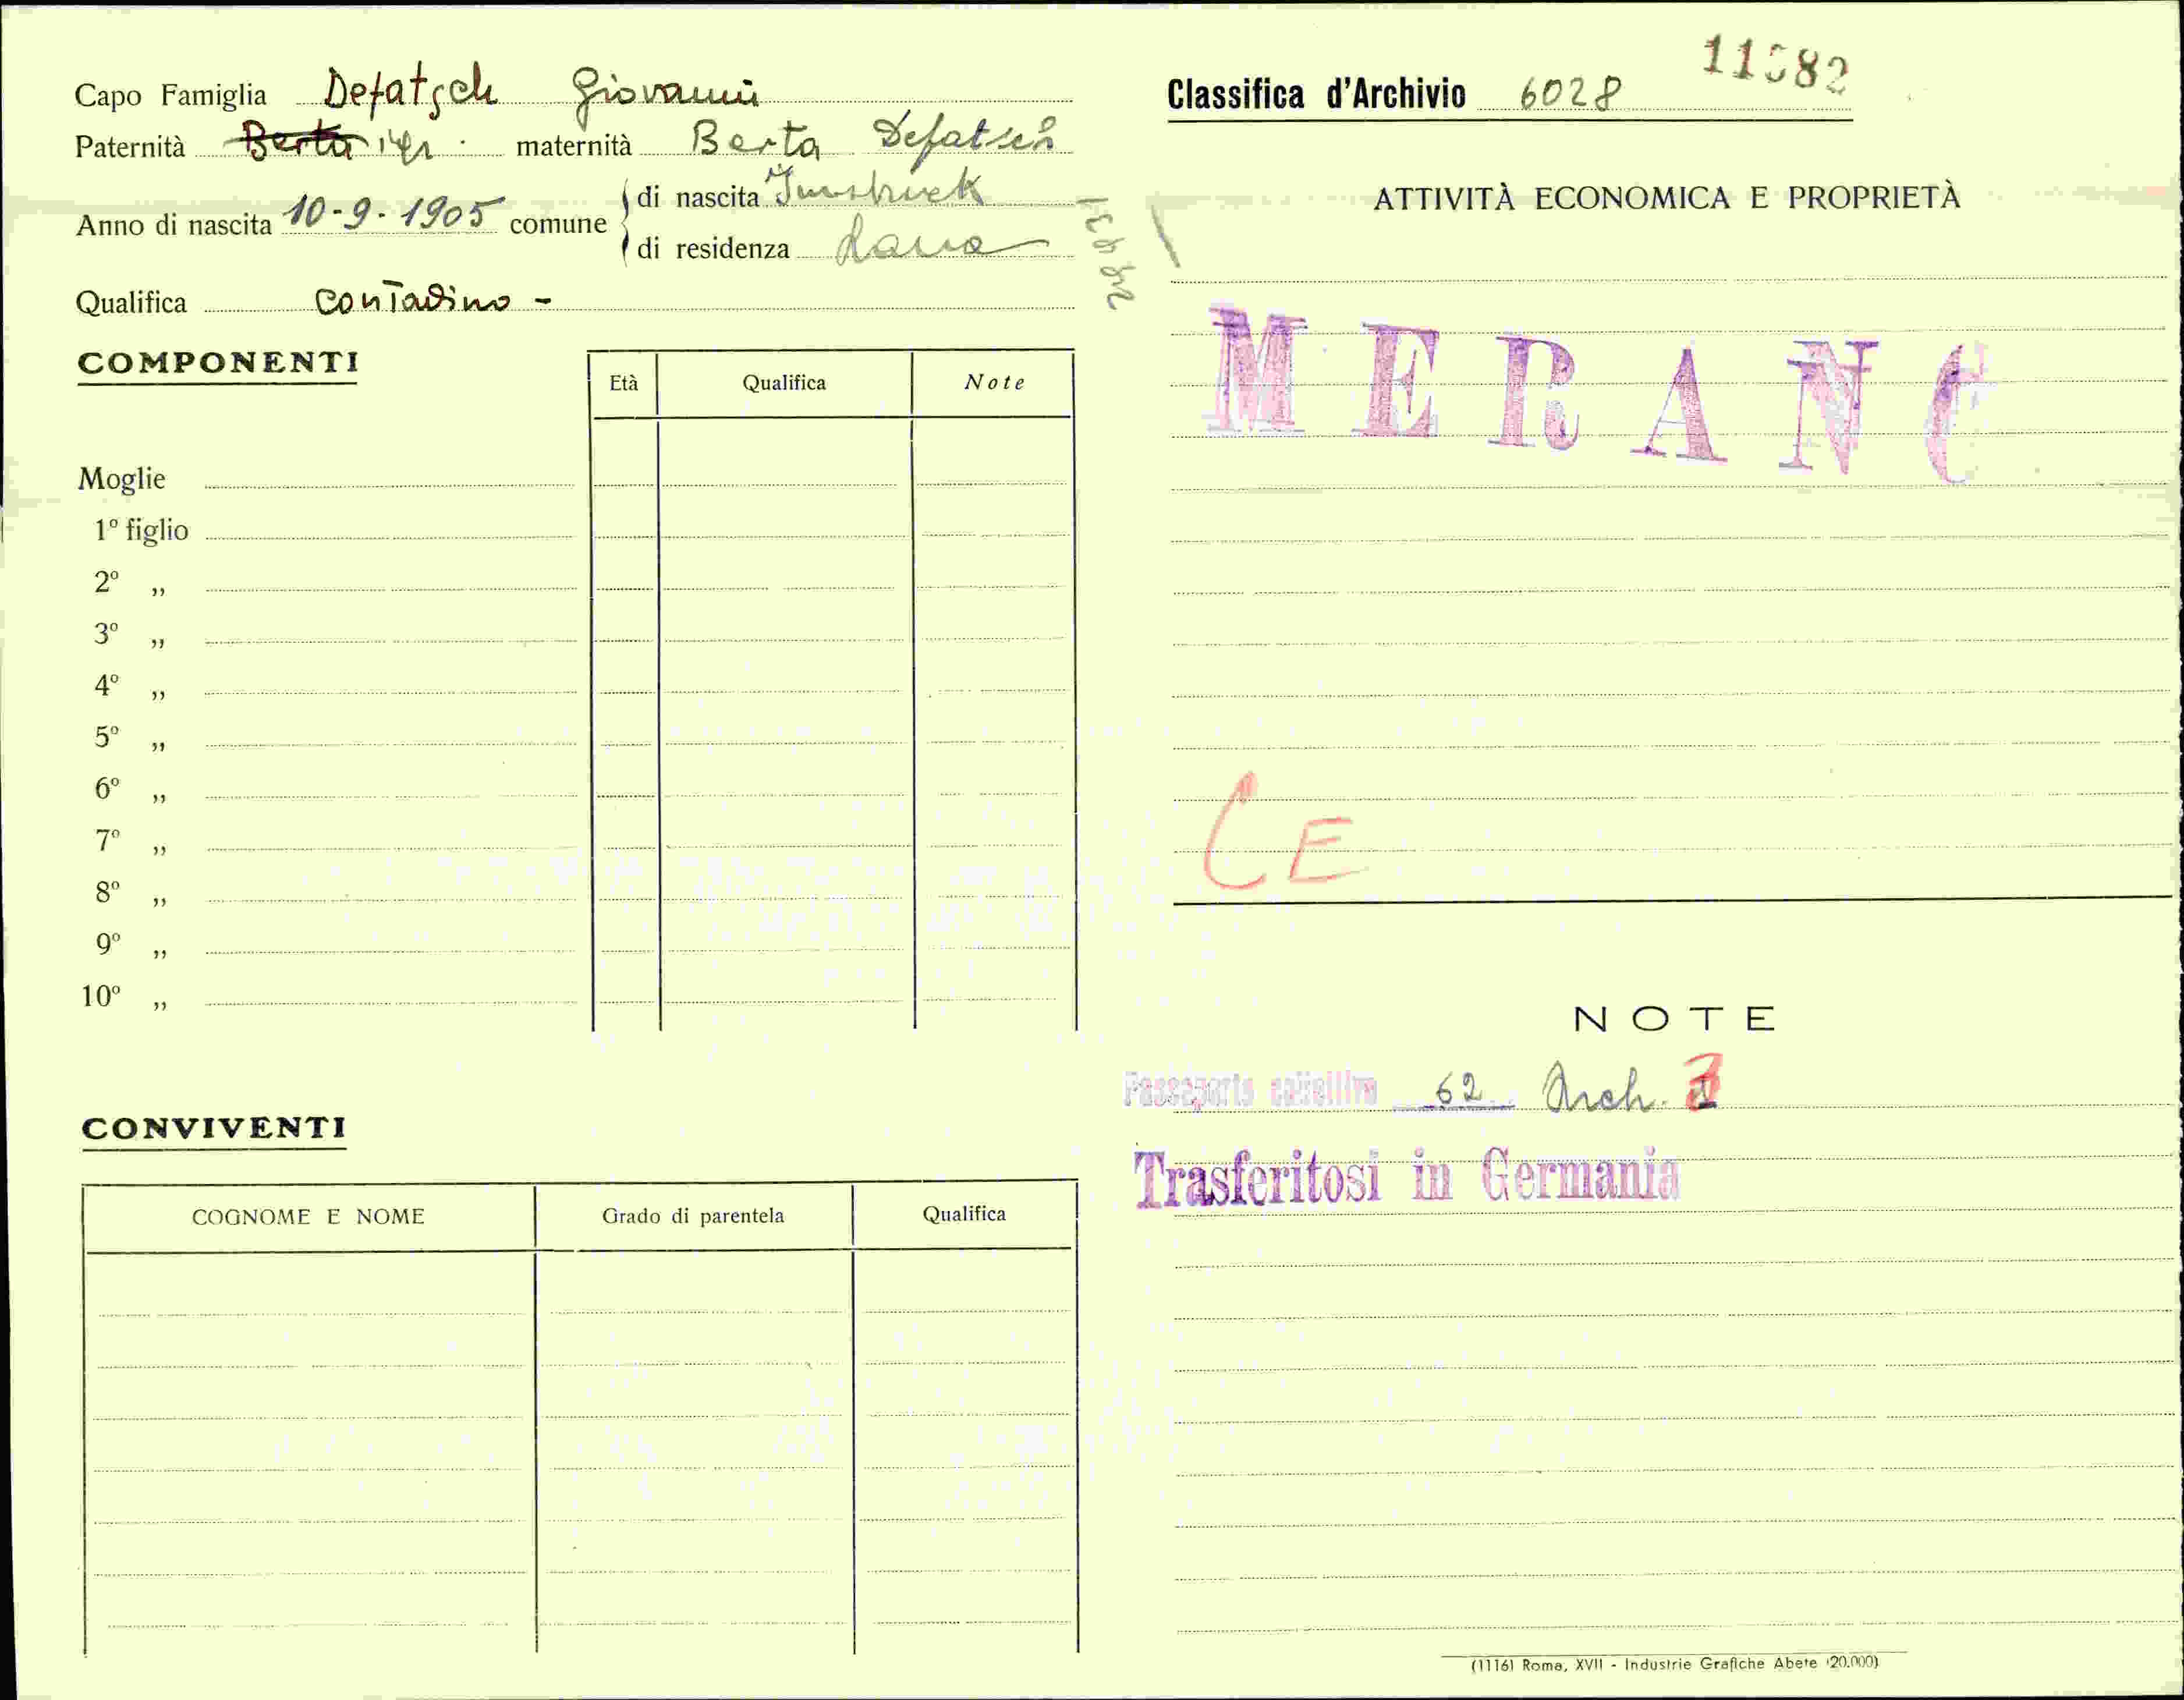 Capo Famiglia Defatsch Giovanni
Paternità Berta maternità Berta Defatsch
Anno di nascita 10-9-1905 comune
di nascita Innsbruck
di residenza Lana
Qualifica contadino -
COMPONENTI
Età Qualifica Note
Moglie
1º figlio
2º „
3º „
4º „
5º „
6º „
7º „
8º „
9º „
10º „
CONVIVENTI
COGNOME E NOME Grado di parentela Qualifica
Classifica d'Archivio 6028
ATTIVITÀ ECONOMICA E PROPRIETÀ
MERANO
CE
NOTE
Passaporto collettivo 62 Arch.
Trasferitosi in Germania
(1116) Roma, XVII - Industrie Grafiche Abete (20.000)